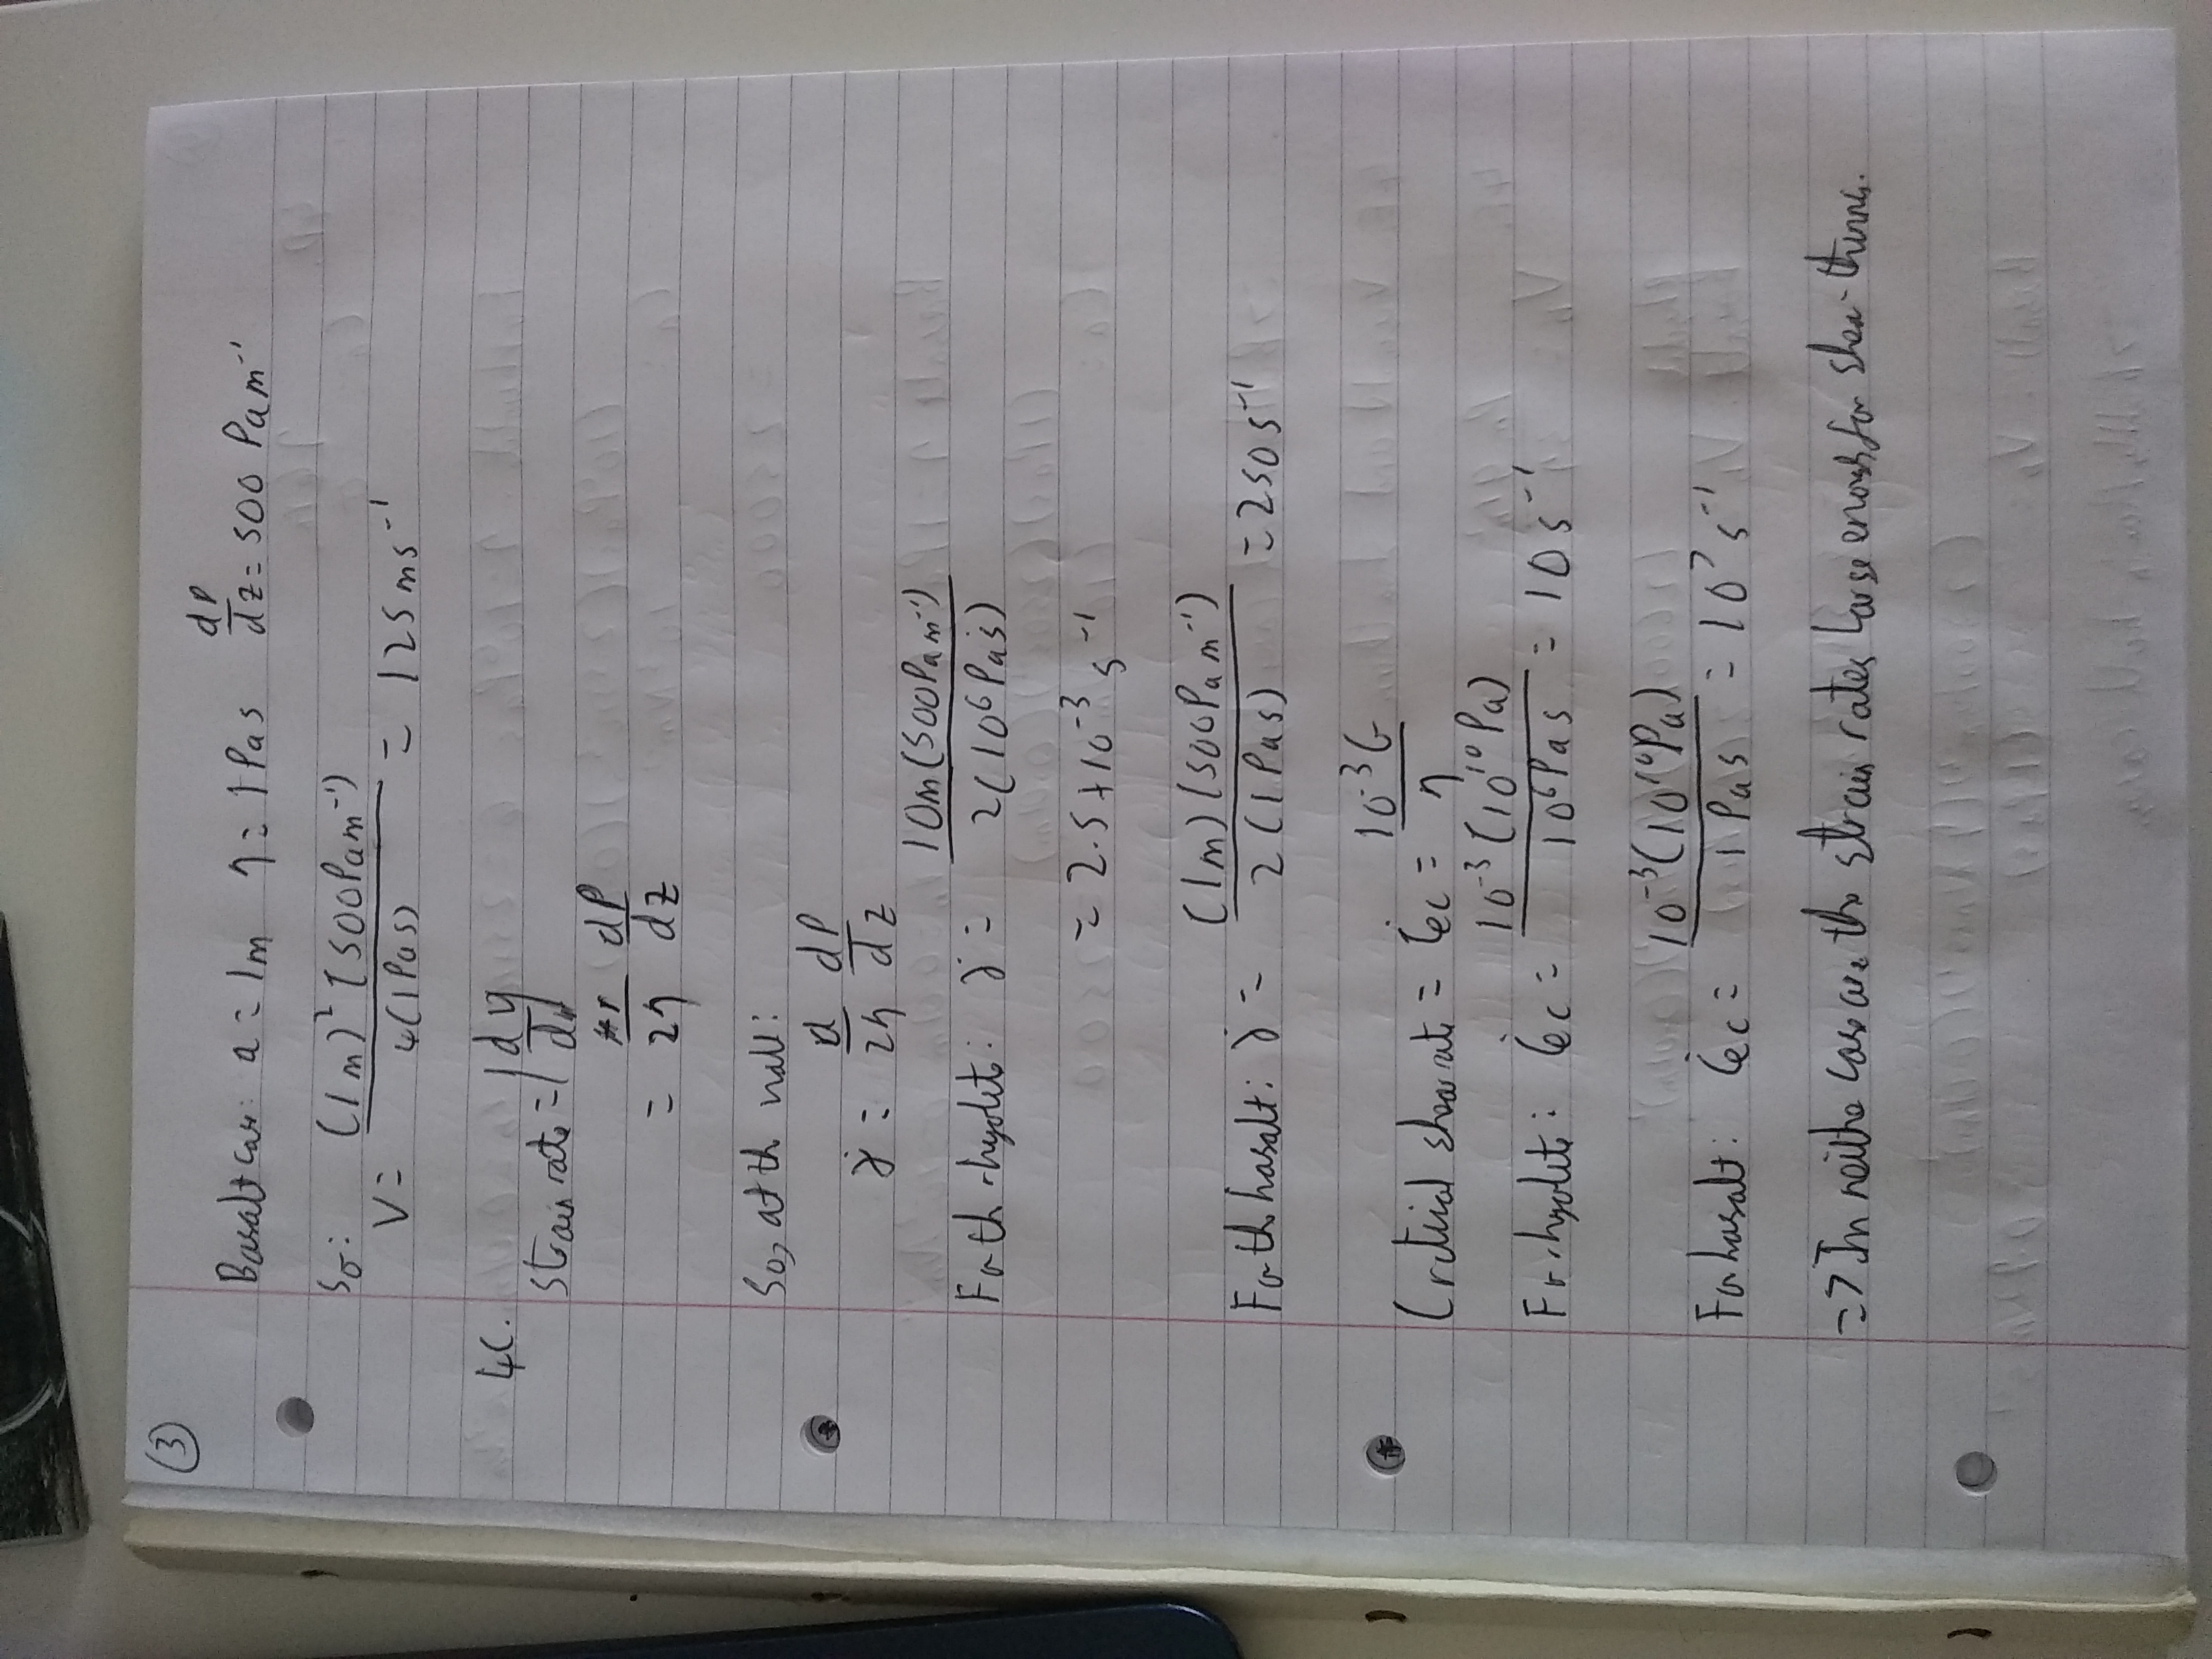 ③
Basalt case: a = 1m η = 1 Pa s dP/dz = 500 Pa m⁻¹
So:
V = (1m)² (500 Pa m⁻¹) / 4(1 Pa s) = 125 m s⁻¹
4C.
Strain rate = |dv/dr|
= r/2η dP/dz
So, at the wall:
γ̇ = a/2η dP/dz
For the rhyolite: γ̇ = 10m (500 Pa m⁻¹) / 2(10⁶ Pa s)
= 2.5 × 10⁻³ s⁻¹
For the basalt: γ̇ = (1m)(500 Pa m⁻¹) / 2(1 Pa s) = 250 s⁻¹
Critical shear rate = ε̇c = 10⁻³G / η
For rhyolite: ε̇c = 10⁻³(10¹⁰ Pa) / 10⁶ Pa s = 10 s⁻¹
For basalt: ε̇c = 10⁻³(10¹⁰ Pa) / 1 Pa s = 10⁷ s⁻¹
=> In neither case are the strain rates large enough for shear-thinning.